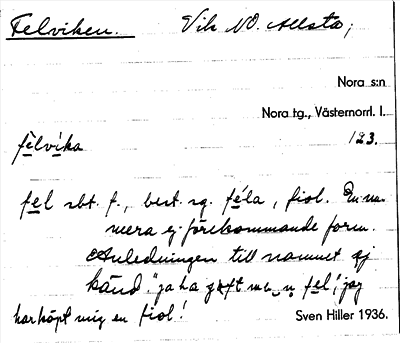 Felviken. Vik NO. Allsta;
Nora s:n
Nora tg., Västernorrl. l.
fèlvíka 123.
fel sbt. f., best. sg. féla, fiol. En nu-
mera ej förekommande form.
Anledningen till namnet ej
känd. "ja ha
fel", jag
har köpt mig en fiol!
Sven Hiller 1936.